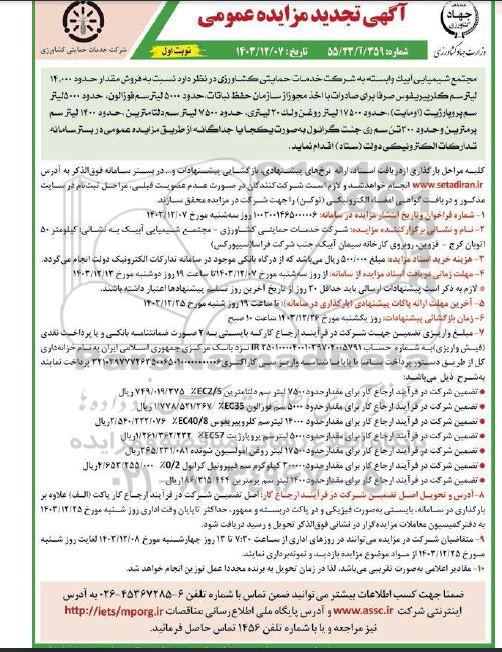 آگهی تجدید مزایده عمومی
جهاد کشاورزی
وزارت جهاد کشاورزی
شرکت خدمات حمایتی کشاورزی
شماره: ۵۵/۲۳/آ/۳۵۹ تاریخ: ۱۴۰۳/۱۲/۰۷ نوبت اول
مجتمع شیمیایی آبیک وابسته به شرکت خدمات حمایتی کشاورزی در نظر دارد نسبت به فروش مقدار حدود ۱۴.۰۰۰
لیتر سم کلرپیریفوس صرفا برای صادرات با اخذ مجوز از سازمان حفظ نباتات، حدود ۵۰۰۰ لیتر سم فوزالون، حدود ۵۰۰۰ لیتر
سم پروپارژیت (اومایت)، حدود ۱۷۵۰۰ لیتر روغن ولک ۲۰ لیتری، حدود ۷۵۰۰ لیتر سم دلتامترین، حدود ۱۴۰۰ لیتر سم
پرمترین و حدود ۳۰۰ تن سم ری جنت گرانول به صورت یکجا یا جداگانه از طریق مزایده عمومی در بستر سامانه
تدارکات الکترونیکی دولت (ستاد) اقدام نماید.
کلیه مراحل بارگذاری از دریافت اسناد، ارائه نرخ‌های پیشنهادی، بازگشایی پیشنهادات و... در بستر سامانه فوق‌الذکر به آدرس
www.setadiran.ir انجام خواهد شد و لازم است شرکت‌کنندگان در صورت عدم عضویت قبلی، مراحل ثبت‌نام در سایت
مذکور و دریافت گواهی امضاء الکترونیکی (توکن) را جهت شرکت در مزایده محقق سازند.
۱- شماره فراخوان و تاریخ انتشار مزایده در سامانه: ۱۰۰۳۰۰۱۴۶۵۰۰۰۰۰۶ روز سه‌شنبه مورخ ۱۴۰۳/۱۲/۰۷
۲- نام و نشانی برگزارکننده مزایده: شرکت خدمات حمایتی کشاورزی - مجتمع شیمیایی آبیک به نشانی: کیلومتر ۵۰
اتوبان کرج - قزوین، روبروی کارخانه سیمان آبیک، جنب شرکت فراسا(سیپورکس)
۳- هزینه خرید اسناد مزایده: مبلغ ۵۰۰/۰۰۰ ریال می‌باشد که از درگاه بانکی موجود در سامانه تدارکات الکترونیک دولت انجام می‌گردد.
۴- مهلت زمانی دریافت اسناد مزایده از سامانه: از روز سه‌شنبه مورخ ۱۴۰۳/۱۲/۰۷ تا ساعت ۱۹ روز دوشنبه مورخ ۱۴۰۳/۱۲/۱۳
* لازم به ذکر است پیشنهادات ارسالی باید حداقل ۳۰ روز از تاریخ آخرین روز تسلیم پیشنهادها اعتبار داشته باشند.
۵- آخرین مهلت ارائه پاکات پیشنهادی (بارگذاری در سامانه): تا ساعت ۱۹ روز شنبه مورخ ۱۴۰۳/۱۲/۲۵
۶- زمان بازگشائی پیشنهادات: روز یکشنبه مورخ ۱۴۰۳/۱۲/۲۶ ساعت ۱۰ صبح
۷- مبلغ و واریزی تضمین جهت شرکت در فرآیند ارجاع کار که بایستی به ۲ صورت ضمانتنامه بانکی و یا پرداخت نقدی
(فیش واریزی) به شماره حساب نزد بانک مرکزی جمهوری اسلامی ایران به نام خزانه‌داری
کل از طریق دستور پرداخت ساتنا یا پایا با شناسه واریز سی کاراکتری پرداخت نمایند
به شرح ذیل می‌باشد:
● تضمین شرکت در فرآیند ارجاع کار برای مقدار حدود ۷۵۰۰ لیتر سم دلتامترین EC2/5٪ ۷۴۹/۰۱۹/۳۷۵ ریال
● تضمین شرکت در فرآیند ارجاع کار برای مقدار حدود ۵۰۰۰ سم فوزالون EC35٪ ۱/۷۷۸/۵۲۱/۲۶۷ ریال
● تضمین شرکت در فرآیند ارجاع کار برای مقدار حدود ۱۴۰۰۰ لیتر سم کلروپیریفوس EC40/8٪ ۲/۵۴۰/۲۲۲/۰۷۶ ریال
● تضمین شرکت در فرآیند ارجاع کار برای مقدار حدود ۵۰۰۰ لیتر سم پروپارژیت EC57٪ ۱/۲۶۱/۳۶۲/۲۳۲ ریال
● تضمین شرکت در فرآیند ارجاع کار برای مقدار حدود ۱۷۵۰۰ لیتر روغن امولسیون شونده ۳۶۵/۲۳۱/۰۸۱ ریال
● تضمین شرکت در فرآیند ارجاع کار برای مقدار حدود ۳۰۰۰۰۰ کیلوگرم سم فیپرونیل گرانول 0/2٪ ۴/۶۵۳/۲۵۵/۰۰۰ ریال
● تضمین شرکت در فرآیند ارجاع کار برای مقدار حدود ۱۴۰۰ لیتر سم پرمترین ۱۸۶/۳۱۵/۴۴۴ ریال
۸- آدرس و تحویل اصل تضمین شرکت در فرآیند ارجاع کار: اصل تضمین شرکت در فرآیند ارجاع کار پاکت (الف) علاوه بر
بارگذاری در سامانه، بایستی به صورت فیزیکی و در پاکت دربسته و ممهور، حداکثر تا پایان وقت اداری روز شنبه مورخ ۱۴۰۳/۱۲/۲۵
به دفتر کمیسیون معاملات مزایده‌گزار در نشانی فوق‌الذکر تحویل و رسید دریافت شود.
۹- متقاضیان شرکت در مزایده می‌توانند در روزهای اداری از ساعت ۷:۳۰ تا ۱۳ روز چهارشنبه مورخ ۱۴۰۳/۱۲/۰۸ لغایت روز شنبه
مورخ ۱۴۰۳/۱۲/۲۵ از مواد موضوع مزایده بازدید و نمونه‌برداری نمایند.
۱۰- مقادیر اعلامی به صورت تقریبی می‌باشد، لذا در زمان تحویل به برنده مجددا عمل توزین انجام خواهد شد.
ضمنا جهت کسب اطلاعات بیشتر می‌توانید ضمن تماس با شماره تلفن ۶-۴۵۳۶۷۲۸۵-۰۲۶ به آدرس
اینترنتی شرکت www.assc.ir و آدرس پایگاه ملی اطلاع‌رسانی مناقصات http://iets/mporg.ir
نیز مراجعه و یا با شماره تلفن ۱۴۵۶ تماس حاصل فرمائید.